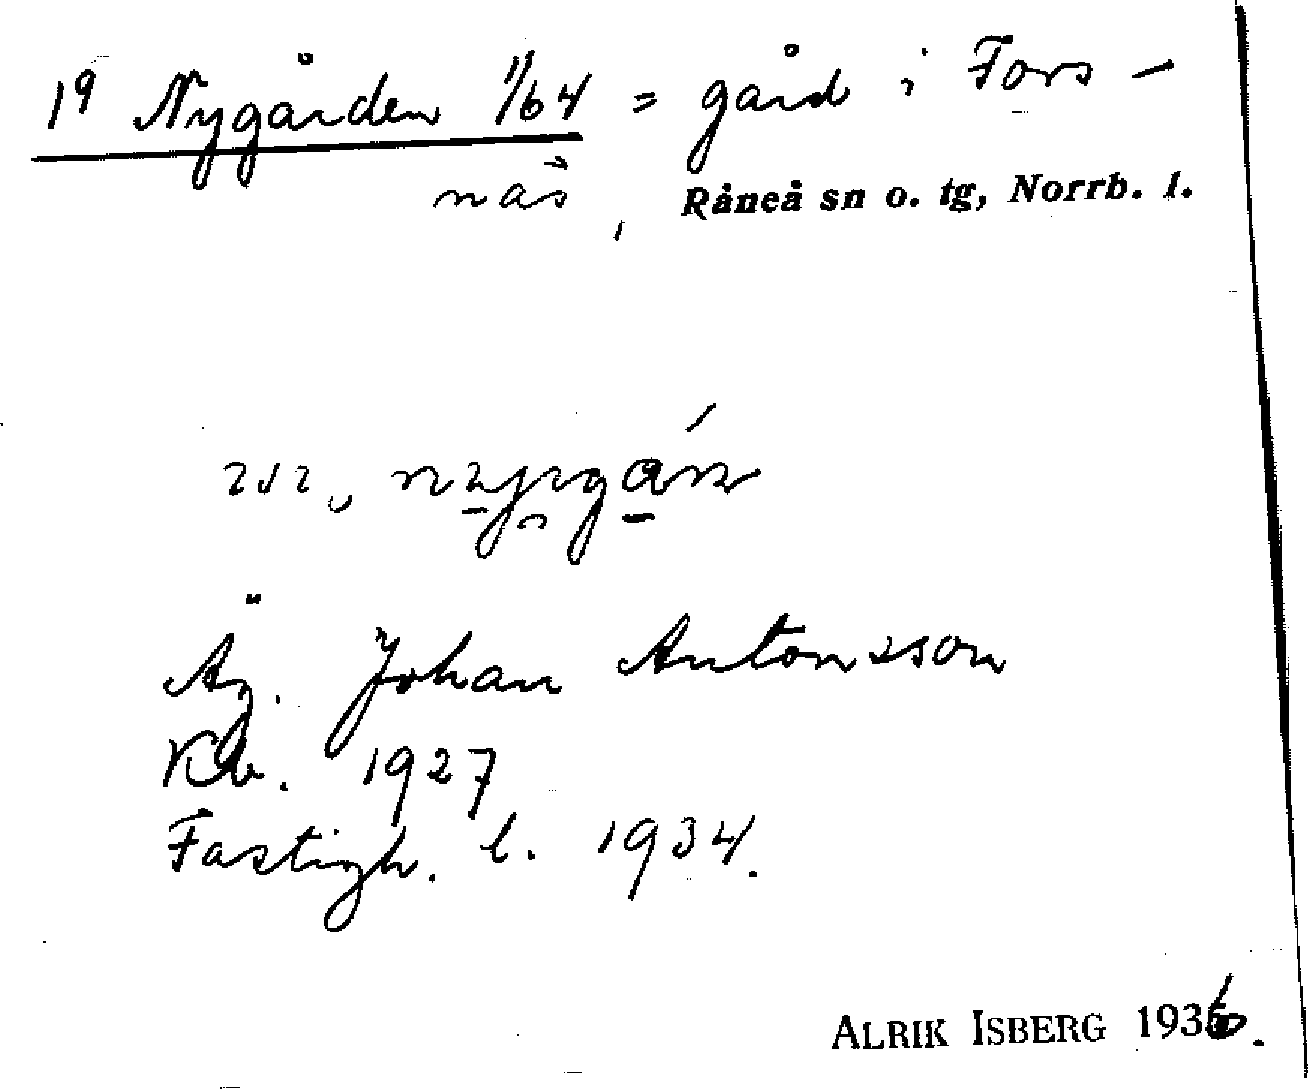 19 Nygården 1/64 = gård i Fors-
näs, Råneå sn o. tg, Norrb. l.
Äg. Johan Antonsson
Kb. 1927
Fastigh. l. 1934.
ALRIK ISBERG 1936.